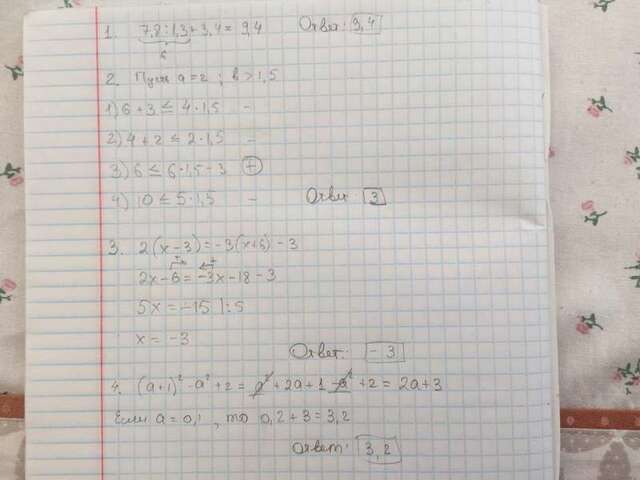 1. 7,8 : 1,3 + 3,4 = 9,4 Ответ: 9,4
6
2. Пусть a = 2 ; b > 1,5
1) 6 + 3 ≤ 4·1,5 -
2) 4 + 2 ≤ 2·1,5 -
3) 6 ≤ 6·1,5 - 3 +
4) 10 ≤ 5·1,5 - Ответ: 3
3. 2(x-3) = -3(x+6) - 3
2x - 6 = -3x - 18 - 3
5x = -15 |:5
x = -3
Ответ: -3
4. (a+1)² - a² + 2 = a² + 2a + 1 - a² + 2 = 2a + 3
Если a = 0,1, то 0,2 + 3 = 3,2
Ответ: 3,2